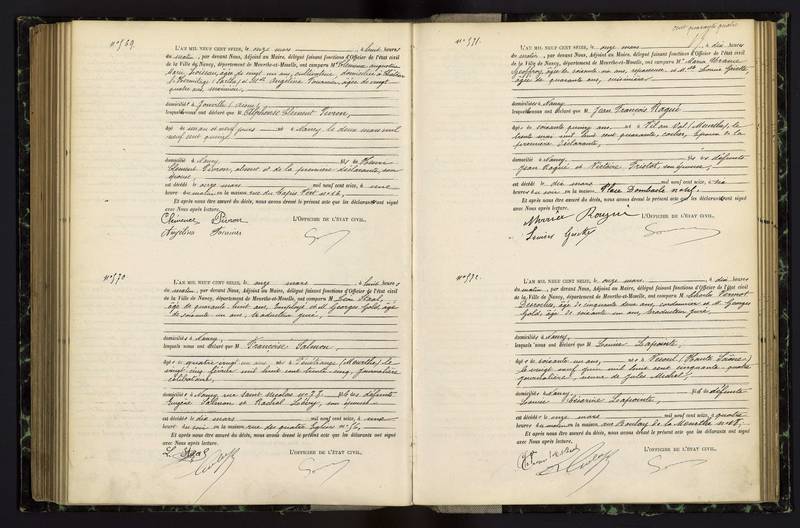 N° 569.
L'AN MIL NEUF CENT SEIZE, le onze mars, à huit heures
du matin, par devant Nous, Adjoint au Maire, délégué faisant fonctions d'Officier de l'état civil
de la Ville de Nancy, département de Meurthe-et-Moselle, ont comparu M
Marie, âgée de vingt un ans, cultivatrice, domiciliée à
et Angelina âgée de vingt
quatre ans,
domiciliés à Joinville
lesquels nous ont déclaré que M. Alphonse Clément Pierron,
âgé de un an et neuf jours né à Nancy le deux mars mil
neuf cent quinze,
domicilié à Nancy fils de Henri
Clément Pierron, absent et de la première déclarante, son
épouse,
est décédé le onze mars mil neuf cent seize, à une
heure du matin en la maison rue du Tapis Vert n°
Et après nous être assuré du décès, nous avons dressé le présent acte que les déclarants ont signé
avec Nous après lecture.
Clémence Pierron
Angelina
L'OFFICIER DE L'ÉTAT CIVIL,
N° 570.
L'AN MIL NEUF CENT SEIZE, le onze mars, à huit heures
du matin, par devant Nous, Adjoint au Maire, délégué faisant fonctions d'Officier de l'état civil
de la Ville de Nancy, département de Meurthe-et-Moselle, ont comparu M. Léon
âgé de quarante huit ans, employé et M. Georges Gold, âgé
de soixante un ans, traducteur juré,
domiciliés à Nancy,
lesquels nous ont déclaré que M. Françoise Salmon,
âgée de quatre vingt un ans, née à Fénétrange (Meurthe) le
vingt cinq février mil huit cent trente cinq, journalière
célibataire,
domiciliée à Nancy, rue Saint Nicolas n° 78 fille des défunts
Eugène Salmon et Rachel son épouse
est décédée le dix mars mil neuf cent seize, à une
heure du soir en la maison rue des quatre Églises n°
Et après nous être assuré du décès, nous avons dressé le présent acte que les déclarants ont signé
avec Nous après lecture.
L'OFFICIER DE L'ÉTAT CIVIL,
cent quarante quatre
N° 571.
L'AN MIL NEUF CENT SEIZE, le onze mars, à dix heures
du matin, par devant Nous, Adjoint au Maire, délégué faisant fonctions d'Officier de l'état civil
de la Ville de Nancy, département de Meurthe-et-Moselle, ont comparu M. Marie
Geoffroy, âgée de soixante un ans, repasseuse et M. Louise
âgée de quarante ans,
domiciliés à Nancy
lesquels nous ont déclaré que M. Jean François Rogué
âgé de soixante quinze ans, né à (Meurthe), le
trente mai mil huit cent quarante, cocher, époux de la
première déclarante,
domicilié à Nancy, fils des défunts
Jean Rogué et Victoire son épouse,
est décédé le dix mars mil neuf cent seize, à six
heures du soir en la maison Place Dombasle
Et après nous être assuré du décès, nous avons dressé le présent acte que les déclarants ont signé
avec Nous après lecture.
L'OFFICIER DE L'ÉTAT CIVIL,
N° 572.
L'AN MIL NEUF CENT SEIZE, le onze mars, à dix heures
du matin, par devant Nous, Adjoint au Maire, délégué faisant fonctions d'Officier de l'état civil
de la Ville de Nancy, département de Meurthe-et-Moselle, ont comparu M. Charles
âgé de cinquante deux ans, cordonnier et M. Georges
Gold, âgé de soixante un ans, traducteur juré,
domiciliés à Nancy,
lesquels nous ont déclaré que M. Louise Lapointe,
âgée de soixante un ans, née à Vesoul (Haute Saône)
le vingt neuf juin mil huit cent cinquante quatre
journalière, veuve de Jules Michel,
domiciliée à Nancy, fille de défunte
Louise Lapointe,
est décédée le onze mars mil neuf cent seize, à quatre
heures du matin en la maison rue Boulay de la Meurthe n°
Et après nous être assuré du décès, nous avons dressé le présent acte que les déclarants ont signé
avec Nous après lecture.
L'OFFICIER DE L'ÉTAT CIVIL,